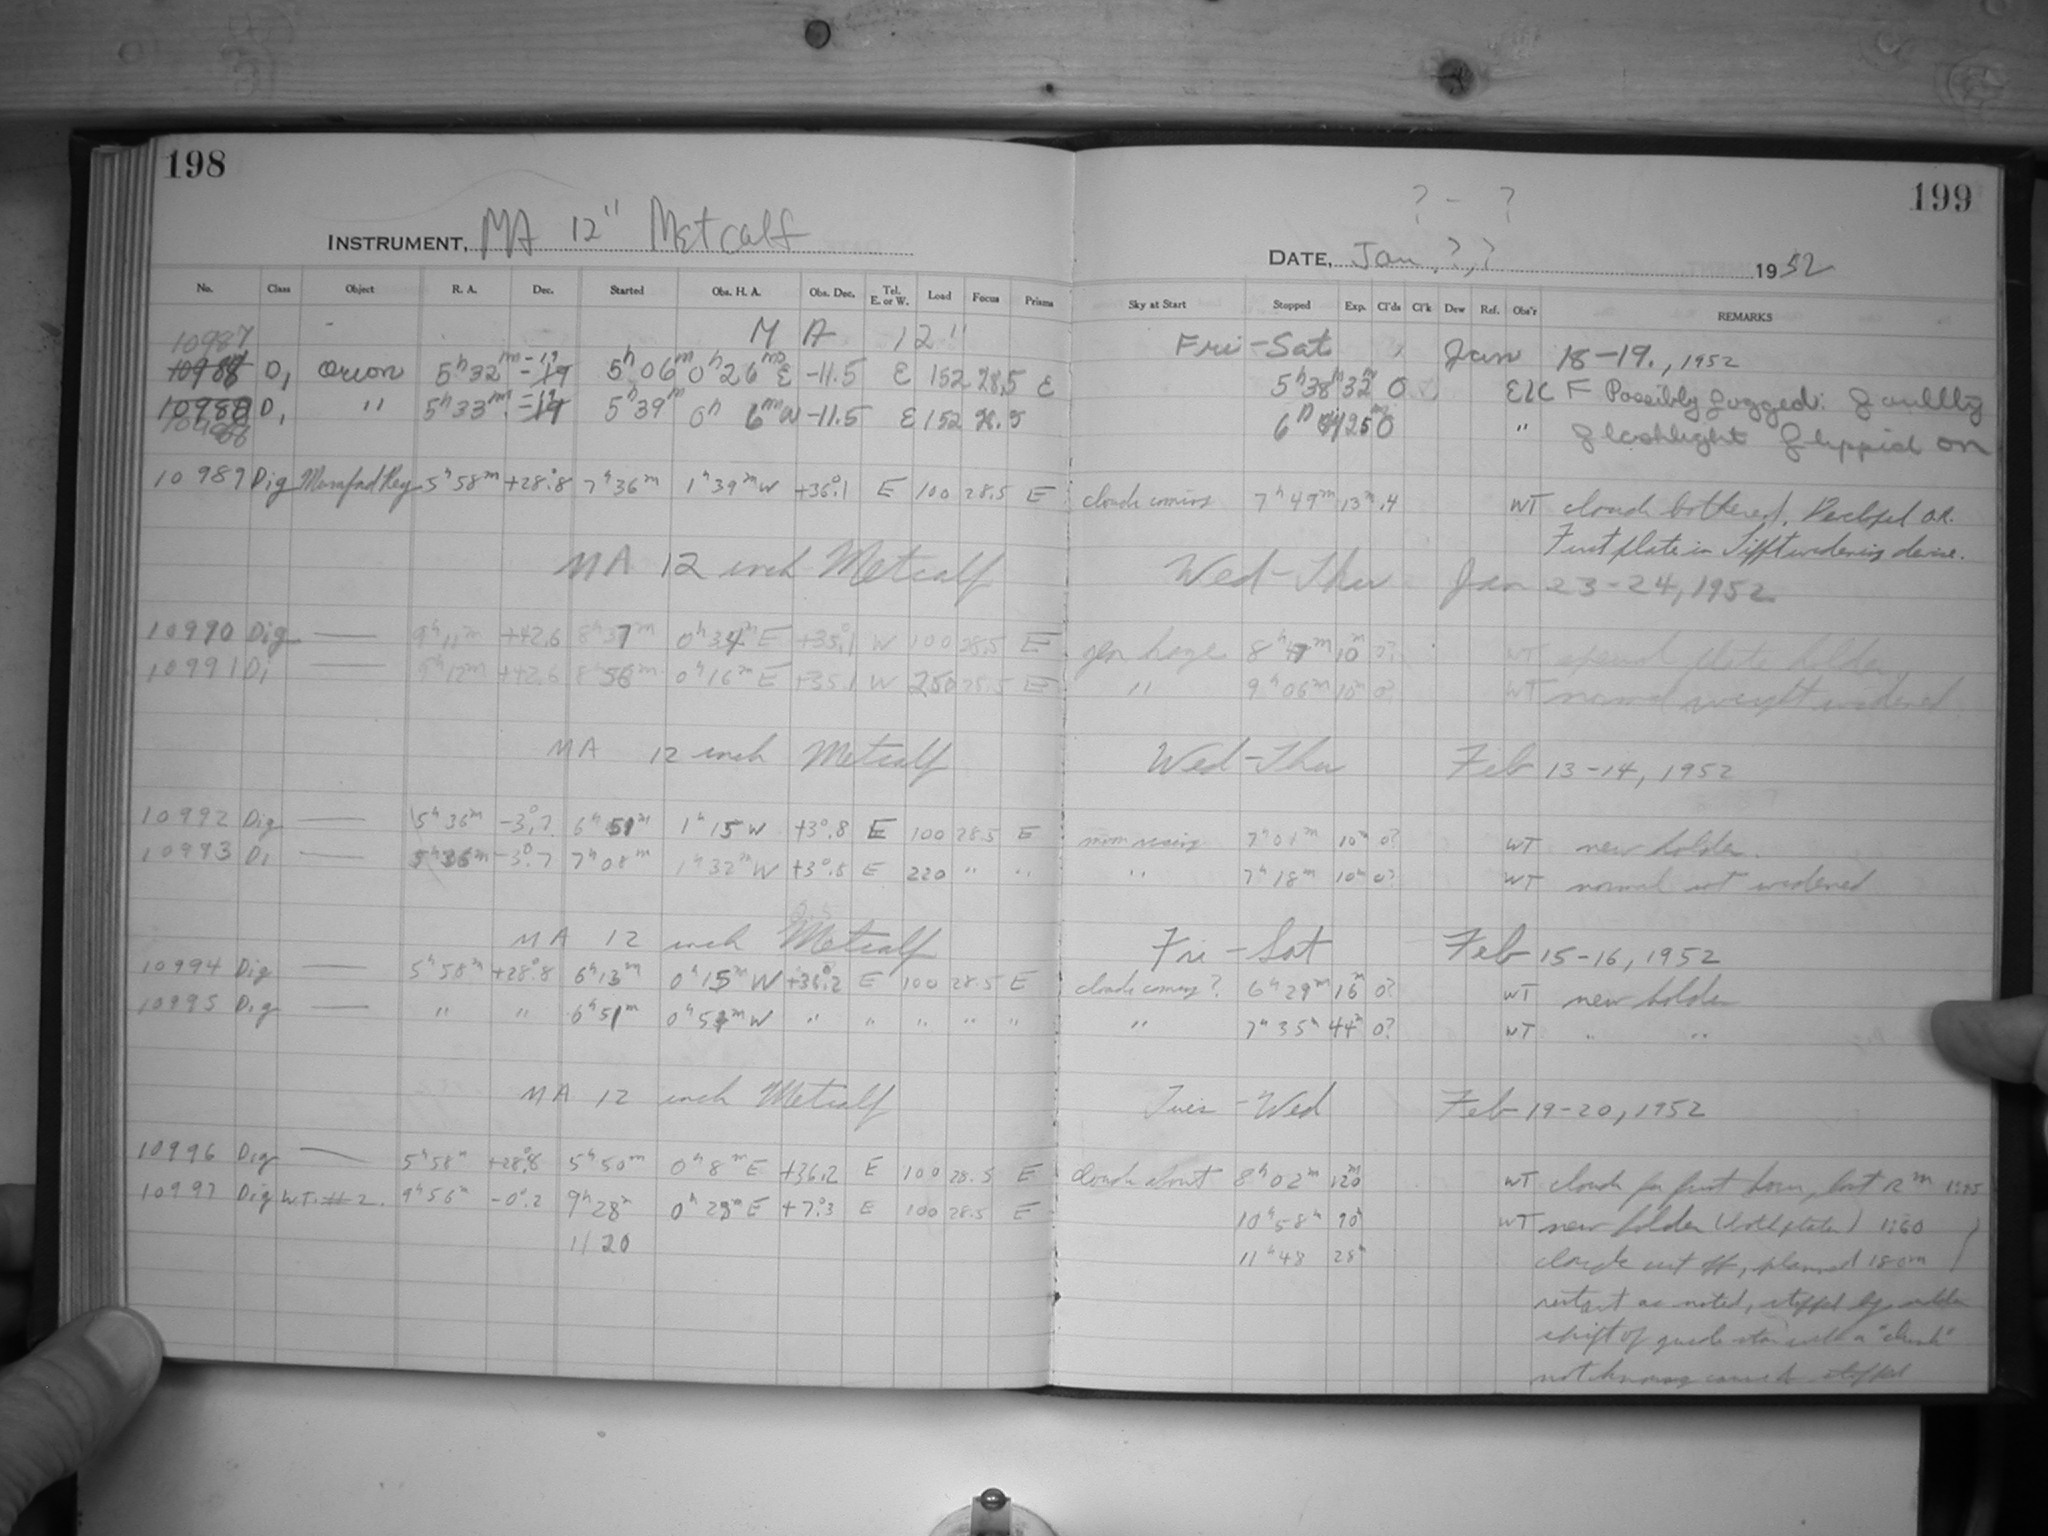 198
INSTRUMENT, MA 12" Metcalf
No. Class Object R. A. Dec. Started Obs. H. A. Obs. Dec. Tel. E. or W. Load Focus Prisms
MA 12"
10987
D, Orion 5h 32m -19 5h 06m 0h 26m E -11.5 E 152 28.5 E
D, " 5h 33m -19 5h 39m 0h 6m W -11.5 E 152
10988
10989 Dig 5h 58m +28°.8 7h 36m 1h 39m W +36°.1 E 100 28.5 E
MA 12 inch Metcalf
10990 Dig — 9h 11m +42.6 8h 37m 0h 34m E +35°.1 W 100 28.5 E
10991 Di — 9h 12m +42.6 8h 56m 0h 16m E +35.1 W 250 28.5 E
MA 12 inch Metcalf
10992 Dig — 5h 36m -3°.7 6h 51m 1h 15 W +3°.8 E 100 28.5 E
10993 Di — 5h 36m -3°.7 7h 08m 1h 32m W +3°.8 E 220 " "
MA 12 inch Metcalf
10994 Dig — 5h 58m +28°.8 6h 13m 0h 15m W +36°.2 E 100 28.5 E
10995 Dig — " " 6h 51m 0h m W " " " " "
MA 12 inch Metcalf
10996 Dig — 5h 58m +28°.8 5h 50m 0h 8m E +36.2 E 100 28.5 E
10997 Dig W.T. # 2. 9h 56m -0°.2 9h 28m 0h 29m E +7°.3 E 100 28.5 E
11 20
199
? - ?
DATE, Jan, ?, ? 1952
Sky at Start Stopped Exp. Cl'ds Cl'k Dew Ref. Obs'r REMARKS
Fri-Sat Jan 18-19., 1952
5h 38m 32m 0 F Possibly fogged: faulty
6h 25m 0 " flashlight flipped on
clouds coming 7h 49m 13m .4 WT clouds bothered. Developed
First plate in Tifft widening device.
Wed-Thu Jan 23-24, 1952
haze 8h 47m 10m 0? WT special plate holder,
" 9h 06m 10m 0? WT normal weight widened
Wed-Thu Feb 13-14, 1952
moon rising 7h 01m 10m 0? WT new holder.
" 7h 18m 10m 0? WT normal wt widened
Fri-Sat Feb 15-16, 1952
clouds coming? 6h 29m 16m 0? WT new holder
" 7h 35m 44m 0? WT " "
Tues-Wed Feb 19-20, 1952
clouds about 8h 02m 120m WT clouds for first hour, lost 12m
10h 58m 90m WT new holder (both plates) 1:60
11h 48 28m clouds cut off, planned 180m
restart as noted, stopped by sudden
shift of guide star with a "clunk"
not knowing caused stopped